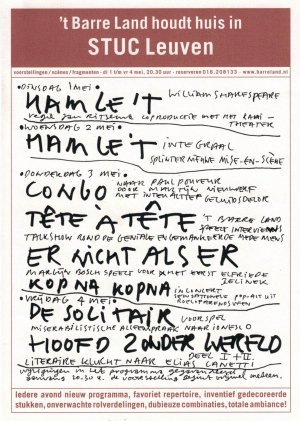 't Barre Land houdt huis in
STUC Leuven
voorstellingen / scènes / fragmenten - di 1 t/m vr 4 mei, 20.30 uur - reserveren 016.208133 - www.barreland.nl
• DINSDAG 1 MEI •
HAMLE'T WILLIAM SHAKESPEARE
regie Jan Ritsema COPRODUCTIE MET HET KAAI-
THEATER
• WOENSDAG 2 MEI •
HAMLE'T INTEGRAAL
SPLINTERNIEUWE MISE-EN-SCÈNE
• DONDERDAG 3 MEI •
CONGO NAAR PAUL POURVEUR
DOOR MARTIJN NIEUWERF
MET INTERACTIEF GELUIDSDECOR
TÊTE À TÊTE 'T BARRE LAND
SPEELT INTERVIEWS
TALKSHOW ROND DE GENIALE EN GEMANKEERDE MEDEMENS
ER NICHT ALS ER
MARTIJN BOSCH SPEELT VOOR 'T EERST ELFRIEDE
JELINEK
KOPNA KOPNA IN CONCERT
SENSATIONELE POP-ACT UIT
• VRIJDAG 4 MEI •
DE SOLITAIR VOORSPEL
MISERABILISTISCHE ALLEENSPRAAK NAAR IONESCO
HOOFD ZONDER WERELD
DEEL I + II
LITERAIRE KLUCHT NAAR ELIAS CANETTI
wijzigingen in het programma
aanvang 20.30 u. de voorstelling begint
Iedere avond nieuw programma, favoriet repertoire, inventief gedecoreerde
stukken, onverwachte rolverdelingen, dubieuze combinaties, totale ambiance!